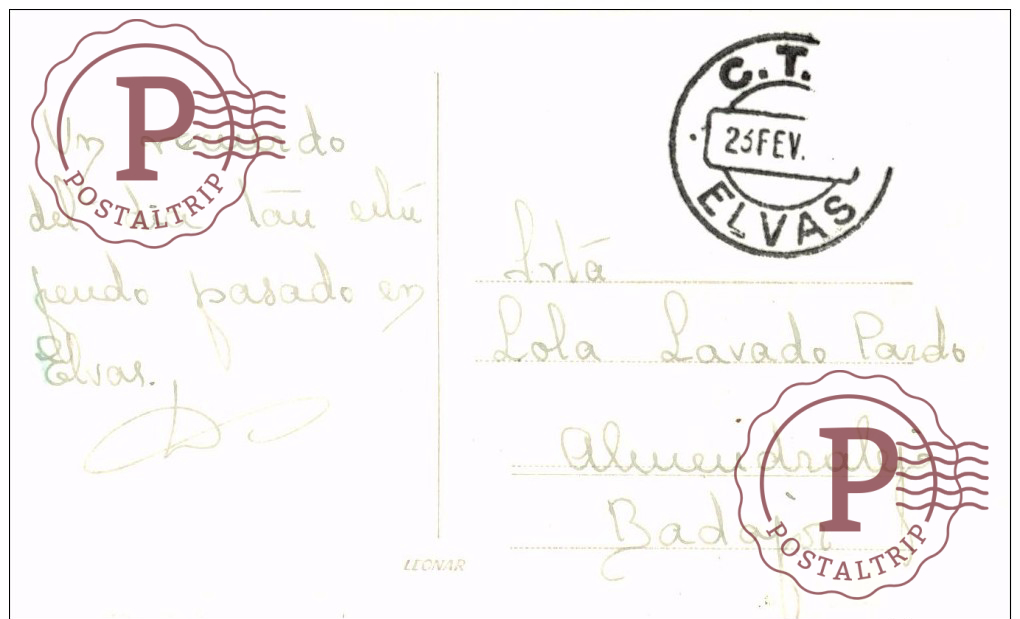 Un recuerdo
del dia tan estu
pendo pasado en
Elvas.
C.T.
23 FEV.
ELVAS
Srtā
Lola Lavado Pardo
Almendralejo
Badajoz
LEONAR
P
POSTALTRIP
P
POSTALTRIP